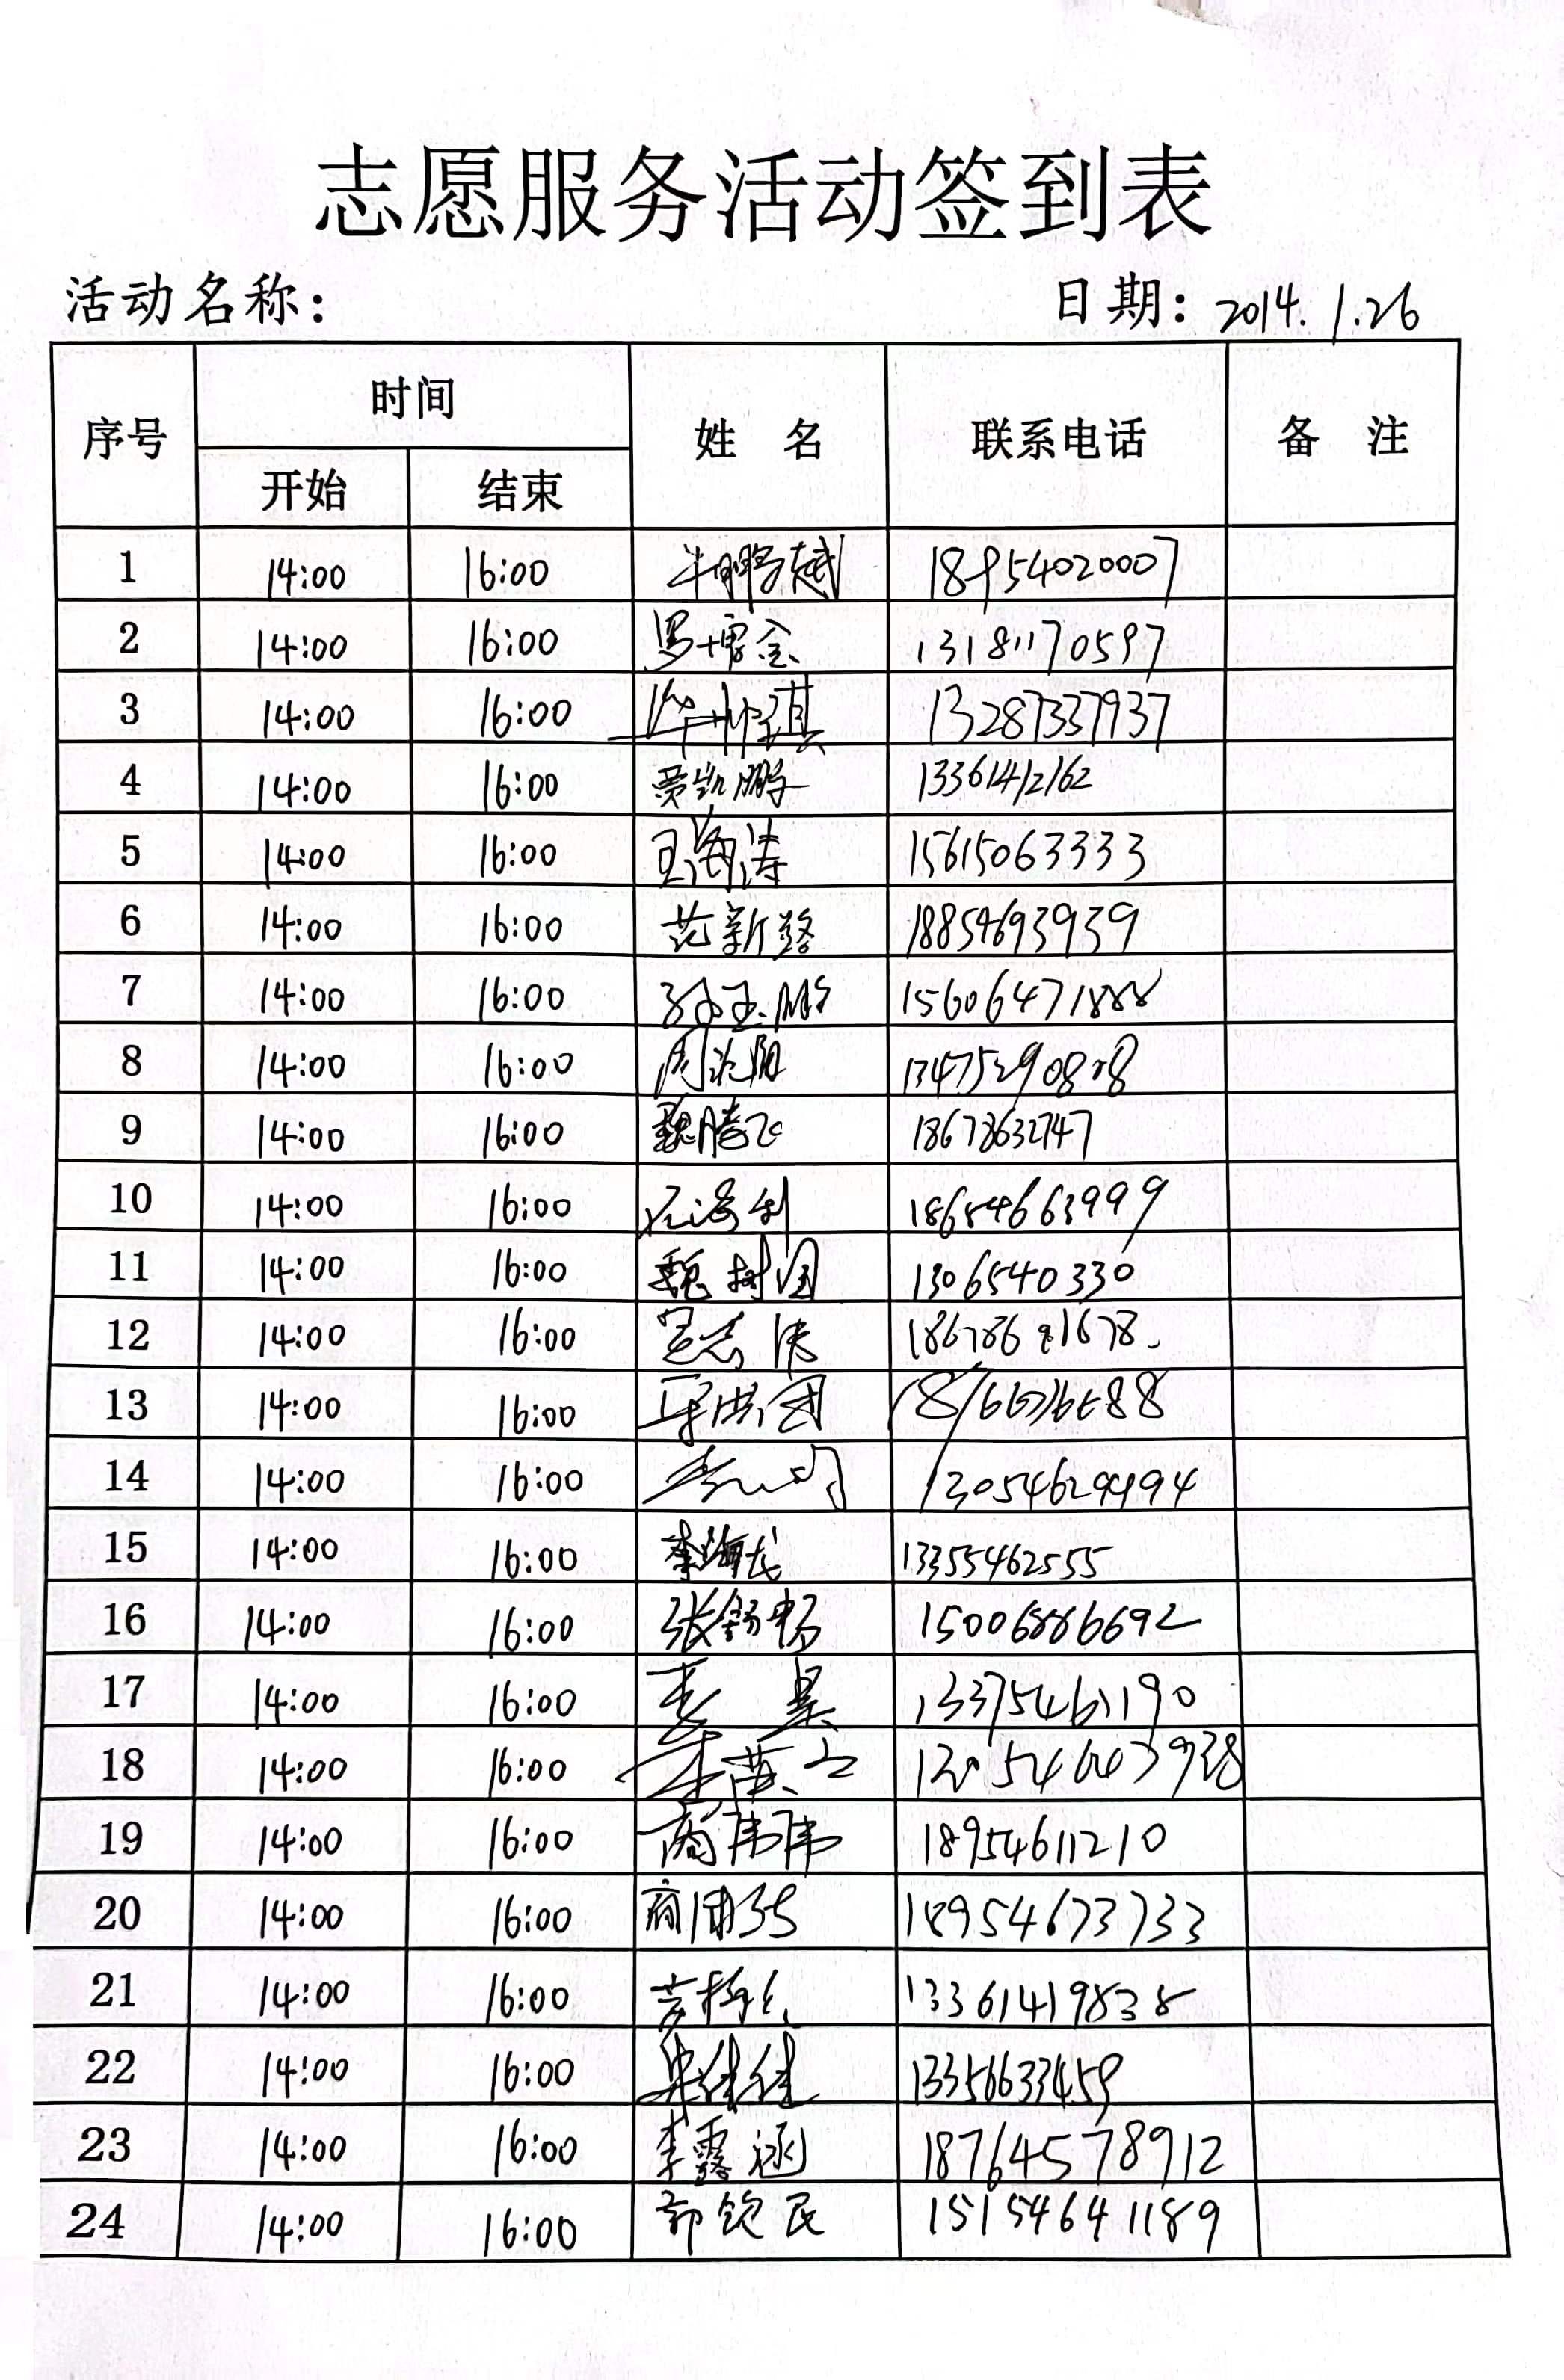 志愿服务活动签到表
活动名称： 日期：2014.1.26
序号 时间 姓 名 联系电话 备 注
开始 结束
1 14:00 16:00 18954020007
2 14:00 16:00 13181170597
3 14:00 16:00 13287337937
4 14:00 16:00 贾凯鹏 13361412162
5 14:00 16:00 王海涛 15615063333
6 14:00 16:00 范新路 18854693939
7 14:00 16:00 孙玉鹏 15606471888
8 14:00 16:00
9 14:00 16:00 魏腾飞 18678632747
10 14:00 16:00 18654663999
11 14:00 16:00 魏树国 1306540330
12 14:00 16:00
13 14:00 16:00
14 14:00 16:00
15 14:00 16:00 李海龙 13355462555
16 14:00 16:00 15006886692
17 14:00 16:00 李昊 13375461190
18 14:00 16:00
19 14:00 16:00 商伟伟 18954611210
20 14:00 16:00 18954673733
21 14:00 16:00 13361419838
22 14:00 16:00 13356633459
23 14:00 16:00 李露涵 18764578912
24 14:00 16:00 郭钦民 15154641189